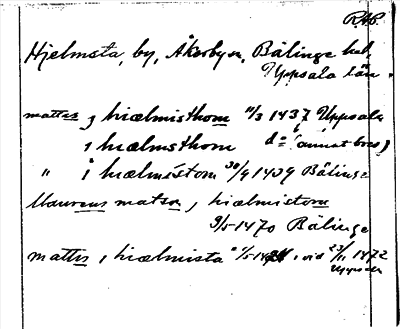 RAP.
Hjelmsta, by, Åkerby sn, Bälinge hd,
Uppsala län.
mattes j hiælmisthom 11/3 1437 Uppsala
j hiælmsthom do (annat brev)
" i hiælmistom 30/9 1439 Bälinge
Laurens matsa j hiælmistom
9/5 1470 Bälinge
mattis i hiælmista vid 23/11 1472
Uppsala